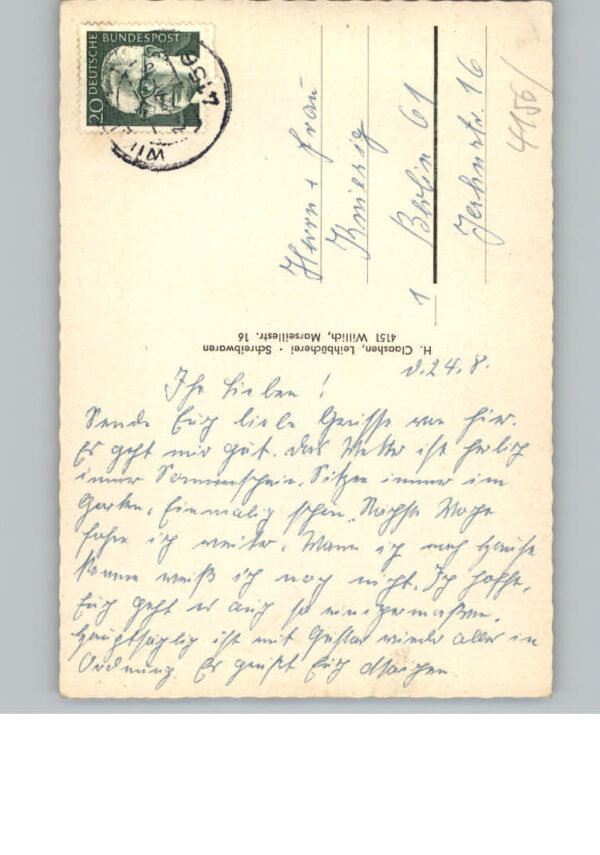 20 DEUTSCHE BUNDESPOST
4156
WIL
4156/
Herrn + Frau
Kniesig
1 Berlin 61
Jahnstr. 16
H. Claashen, Leihbücherei · Schreibwaren
4151 Willich, Marseillestr. 16
d. 24.8.
Ihr Lieben!
Sende Euch liebe Grüsse von hier.
Es geht mir gut. Das Wetter ist herlich
immer Sonnenschein. Sitzen immer im
Garten, Einmalig schön. Nächste Woche
fahre ich weiter. Wann ich nach Hause
komme weiß ich noch nicht. Ich hoffe,
Euch geht es auch so einigermaßen.
Hauptsächlich ist mit Gustav wieder alles in
Ordnung. Es grüßt Euch